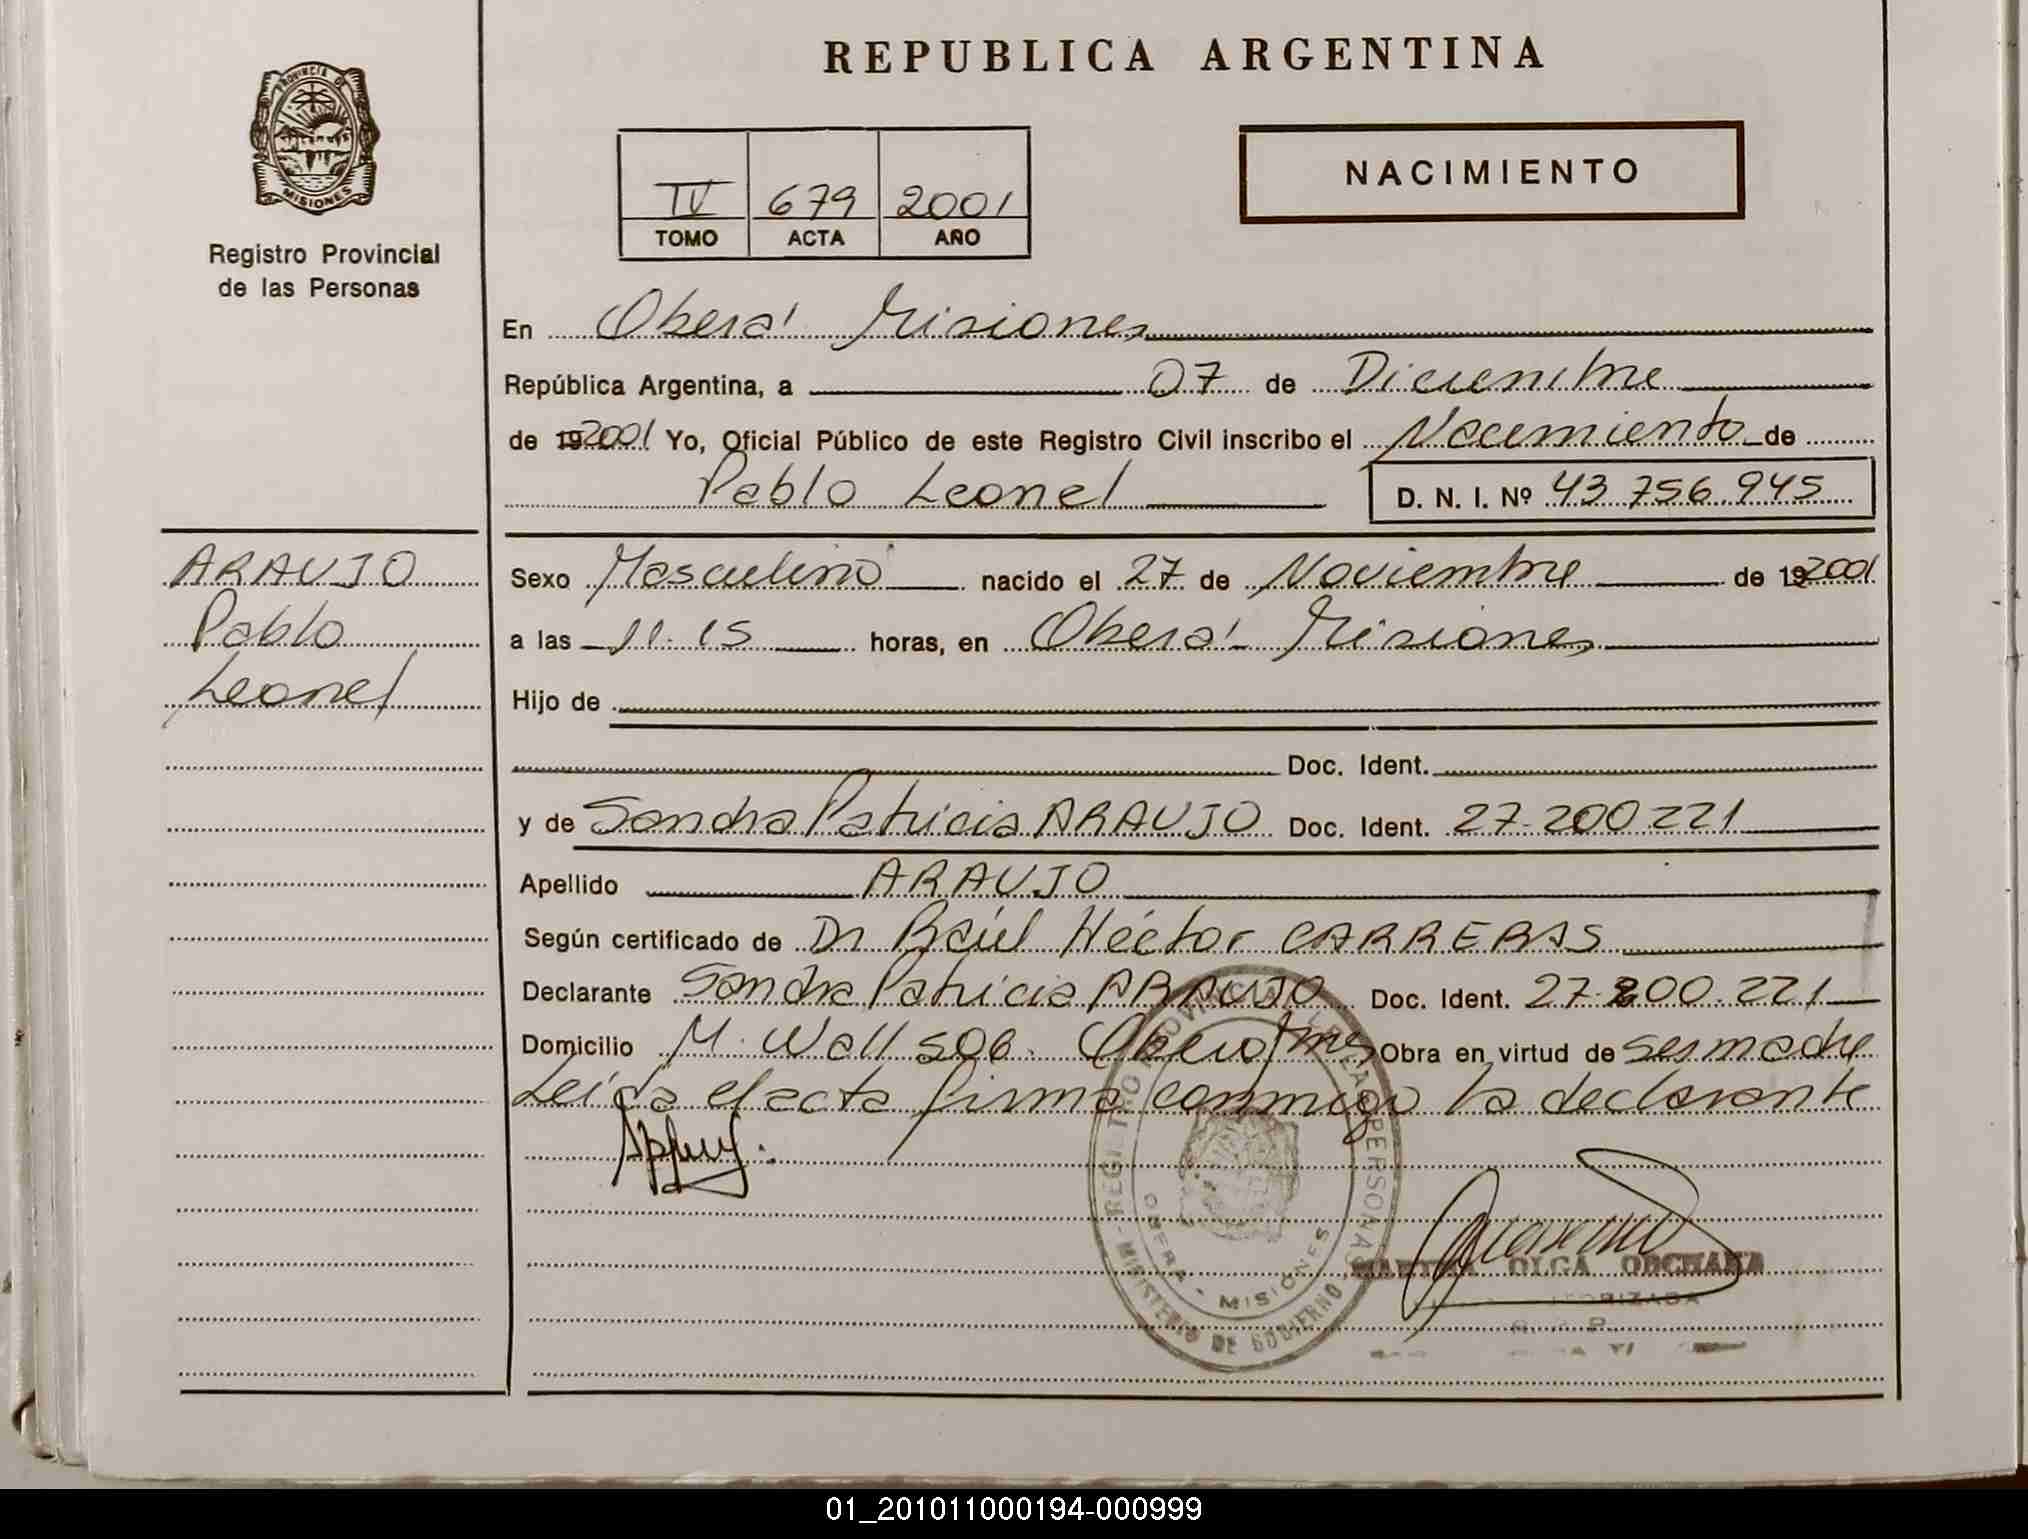 REPUBLICA ARGENTINA
PROVINCIA DE
MISIONES
Registro Provincial
de las Personas
NACIMIENTO
IV 679 2001
TOMO ACTA AÑO
En Oberá Misiones
República Argentina, a 07 de Diciembre
de 19 2001 Yo, Oficial Público de este Registro Civil inscribo el Nacimiento de
Pablo Leonel D. N. I. Nº 43 756.945
ARAUJO
Pablo
Leonel
Sexo Masculino nacido el 27 de Noviembre de 19 2001
a las 11.15 horas, en Oberá Misiones
Hijo de
Doc. Ident.
y de Sandra Patricia ARAUJO Doc. Ident. 27.200.221
Apellido ARAUJO
Según certificado de Dr Raúl Héctor CARRERAS
Declarante Sandra Patricia ARAUJO Doc. Ident. 27.200.221
Domicilio M. Wall 506. Oberá Mns Obra en virtud de ser madre
Leída el acta firma conmigo la declarante
REGISTRO PROVINCIAL DE LAS PERSONAS
OBERA - MISIONES
MINISTERIO DE GOBIERNO
MARTHA OLGA
01_201011000194-000999